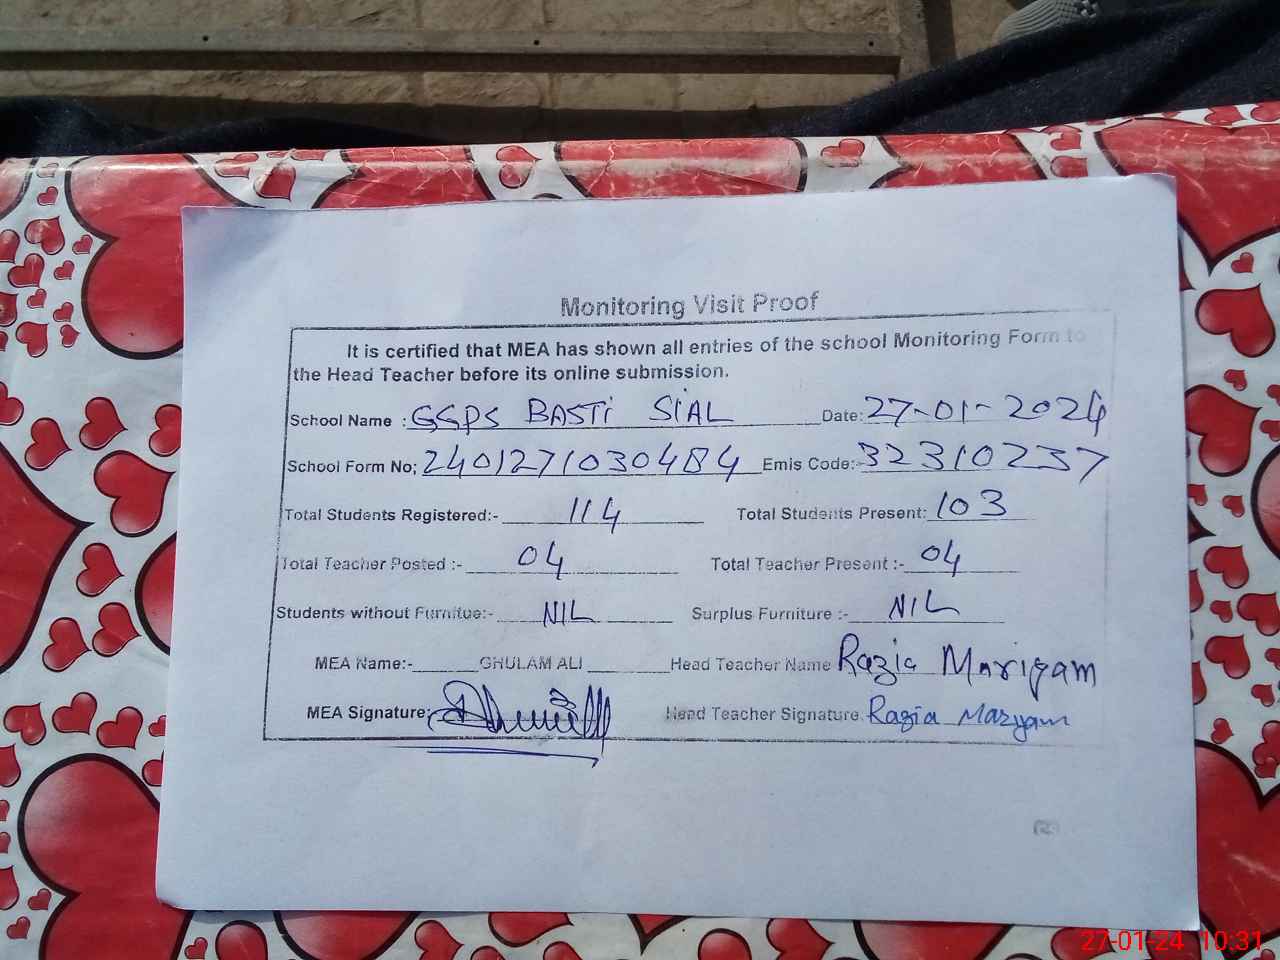 Monitoring Visit Proof
It is certified that MEA has shown all entries of the school Monitoring Form to
the Head Teacher before its online submission.
School Name : GGPS BASTi SiAL Date: 27-01-2024
School Form No; 2401271030484 Emis Code:- 32310237
Total Students Registered:- 114 Total Students Present: 103
Total Teacher Posted :- 04 Total Teacher Present :- 04
Students without Furnitue:- NIL Surplus Furniture :- NIL
MEA Name:- GHULAM ALI Head Teacher Name Razia Mariyam
MEA Signature: Head Teacher Signature. Razia Maryam
27-01-24 10:31